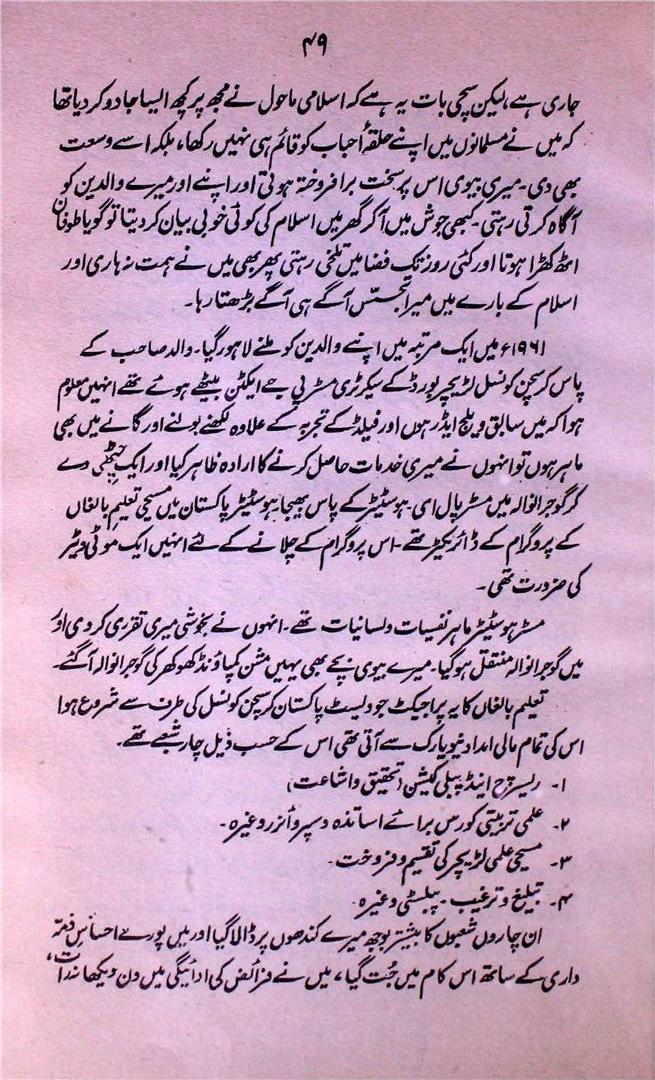 ۴۹
جاری ہے، لیکن سچی بات یہ ہے کہ اسلامی ماحول نے مجھ پر کچھ ایسا جادو کر دیا تھا
کہ میں نے مسلمانوں میں اپنے حلقۂ احباب کو قائم ہی نہیں رکھا، بلکہ اسے وسعت
بھی دی۔ میری بیوی اس پر سخت برافروختہ ہوتی اور اپنے اور میرے والدین کو
آگاہ کرتی رہتی۔ کبھی جوش میں آ کر گھر میں اسلام کی کوئی خوبی بیان کر دیتا تو گویا طوفان
اٹھ کھڑا ہوتا اور کئی روز تک فضا میں تلخی رہتی پھر بھی میں نے ہمت نہ ہاری اور
اسلام کے بارے میں میرا تجسّس آگے ہی آگے بڑھتا رہا۔
۱۹۶۱ء میں ایک مرتبہ میں اپنے والدین کو ملنے لاہور گیا۔ والد صاحب کے
پاس کرسچن کونسل لڑیچر بورڈ کے سیکرٹری مسٹر پی جے ایکٹن بیٹھے ہوئے تھے انہیں معلوم
ہوا کہ میں سابق ویلج ایڈر ہوں اور فیلڈ کے تجربہ کے علاوہ لکھنے بولنے اور گانے میں بھی
ماہر ہوں تو انہوں نے میری خدمات حاصل کرنے کا ارادہ ظاہر کیا اور ایک چٹھی دے
کر گوجرانوالہ میں مسٹر پال ای۔ ہوسٹیٹر کے پاس بھیجا۔ ہوسٹیٹر پاکستان میں مسیحی تعلیم بالغاں
کے پروگرام کے ڈائریکٹر تھے۔ اس پروگرام کے چلانے کے لئے انہیں ایک موٹی ویٹر
کی ضرورت تھی۔
مسٹر ہوسٹیٹر ماہر نفسیات و لسانیات تھے۔ انہوں نے بخوشی میری تقرری کر دی اور
میں گوجرانوالہ منتقل ہو گیا۔ میرے بیوی بچے بھی یہیں مشن کمپاؤنڈ کھوکھر کی گوجرانوالہ آ گئے۔
تعلیم بالغاں کا یہ پراجیکٹ جو ویسٹ پاکستان کرسچن کونسل کی طرف سے شروع ہوا
اس کی تمام مالی امداد نیویارک سے آتی تھی اس کے حسب ذیل چار شعبے تھے۔
۱۔ ریسرچ اینڈ پبلی کیشن (تحقیق و اشاعت)
۲۔ علمی تربیتی کورس برائے اساتذہ و سپروائزر وغیرہ۔
۳۔ مسیحی علمی لڑیچر کی تقسیم و فروخت۔
۴۔ تبلیغ و ترغیب۔ پبلسٹی وغیرہ۔
ان چاروں شعبوں کا بیشتر بوجھ میرے کندھوں پر ڈالا گیا اور میں پورے احساسِ ذمّہ
داری کے ساتھ اس کام میں جُت گیا، میں نے فرائض کی ادائیگی میں دن دیکھا نہ رات،